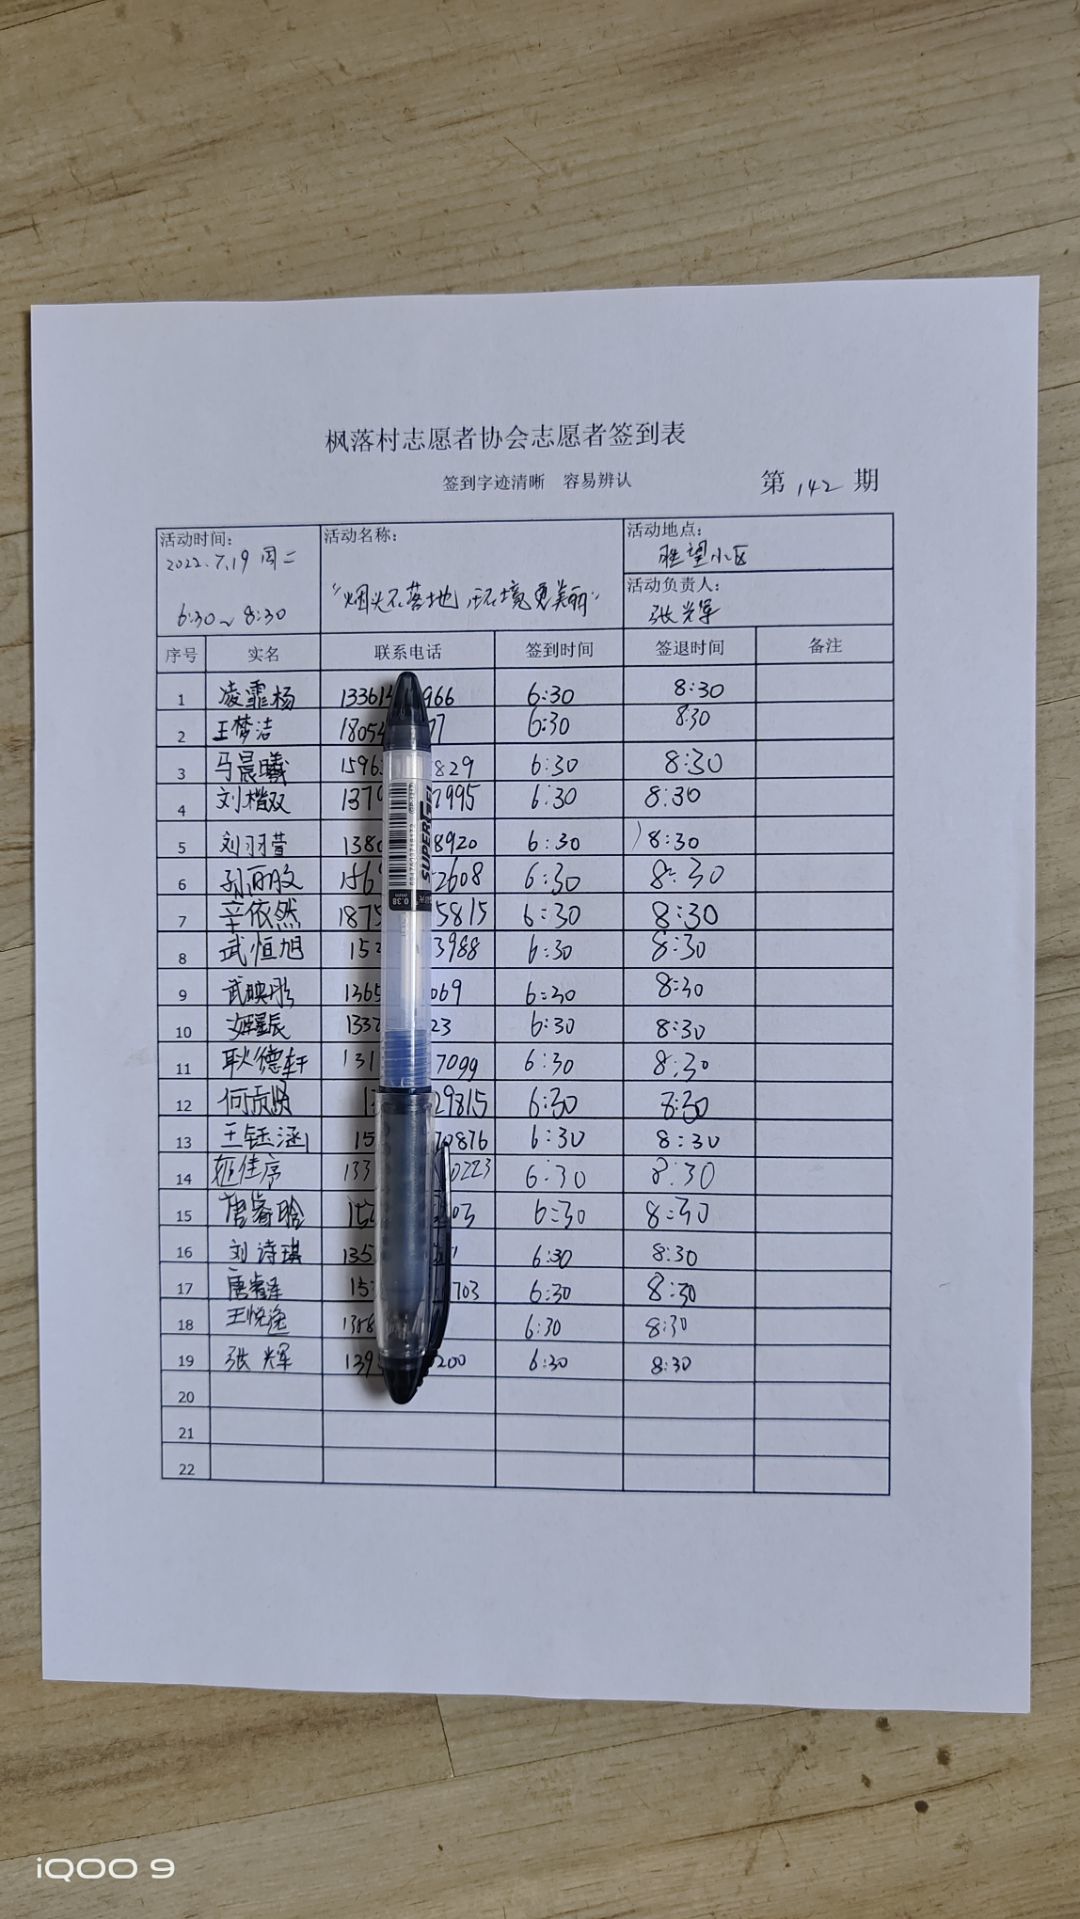 枫落村志愿者协会志愿者签到表
签到字迹清晰 容易辨认
第 142 期
活动时间: 活动名称: 活动地点:
2022.7.19 周二 胜望小区
活动负责人:
"烟头不落地,环境更美丽"
6:30~8:30 张光军
序号 实名 联系电话 签到时间 签退时间 备注
1 凌霏杨 13361 966 6:30 8:30
2 王梦洁 1805 77 6:30 8:30
3 马晨曦 1596 829 6:30 8:30
4 刘楷双 1370 2995 6:30 8:30
5 刘羽萱 1380 8920 6:30 8:30
6 孙丽姣 156 2608 6:30 8:30
7 辛依然 1875 5815 6:30 8:30
8 武恒旭 152 3988 6:30 8:30
9 武映彤 1365 069 6:30 8:30
10 1332 23 6:30 8:30
11 耿德轩 131 7099 6:30 8:30
12 何贡贤 13 29815 6:30 8:30
13 王钰涵 15 70876 6:30 8:30
14 133 0223 6:30 8:30
15 唐睿晗 15 03 6:30 8:30
16 刘诗琪 135 6:30 8:30
17 唐睿泽 15 703 6:30 8:30
18 王悦逸 138 6:30 8:30
19 张辉 139 200 6:30 8:30
20
21
22
SUPER GEL
0.38
iQOO 9